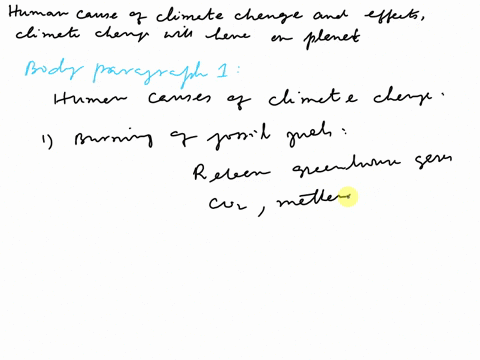 Human cause of climate change and effects,
climate change will have on planet
Body paragraph 1:
Human causes of climate change.
1) Burning of fossil fuels:
Release greenhouse gases
CO2, methan